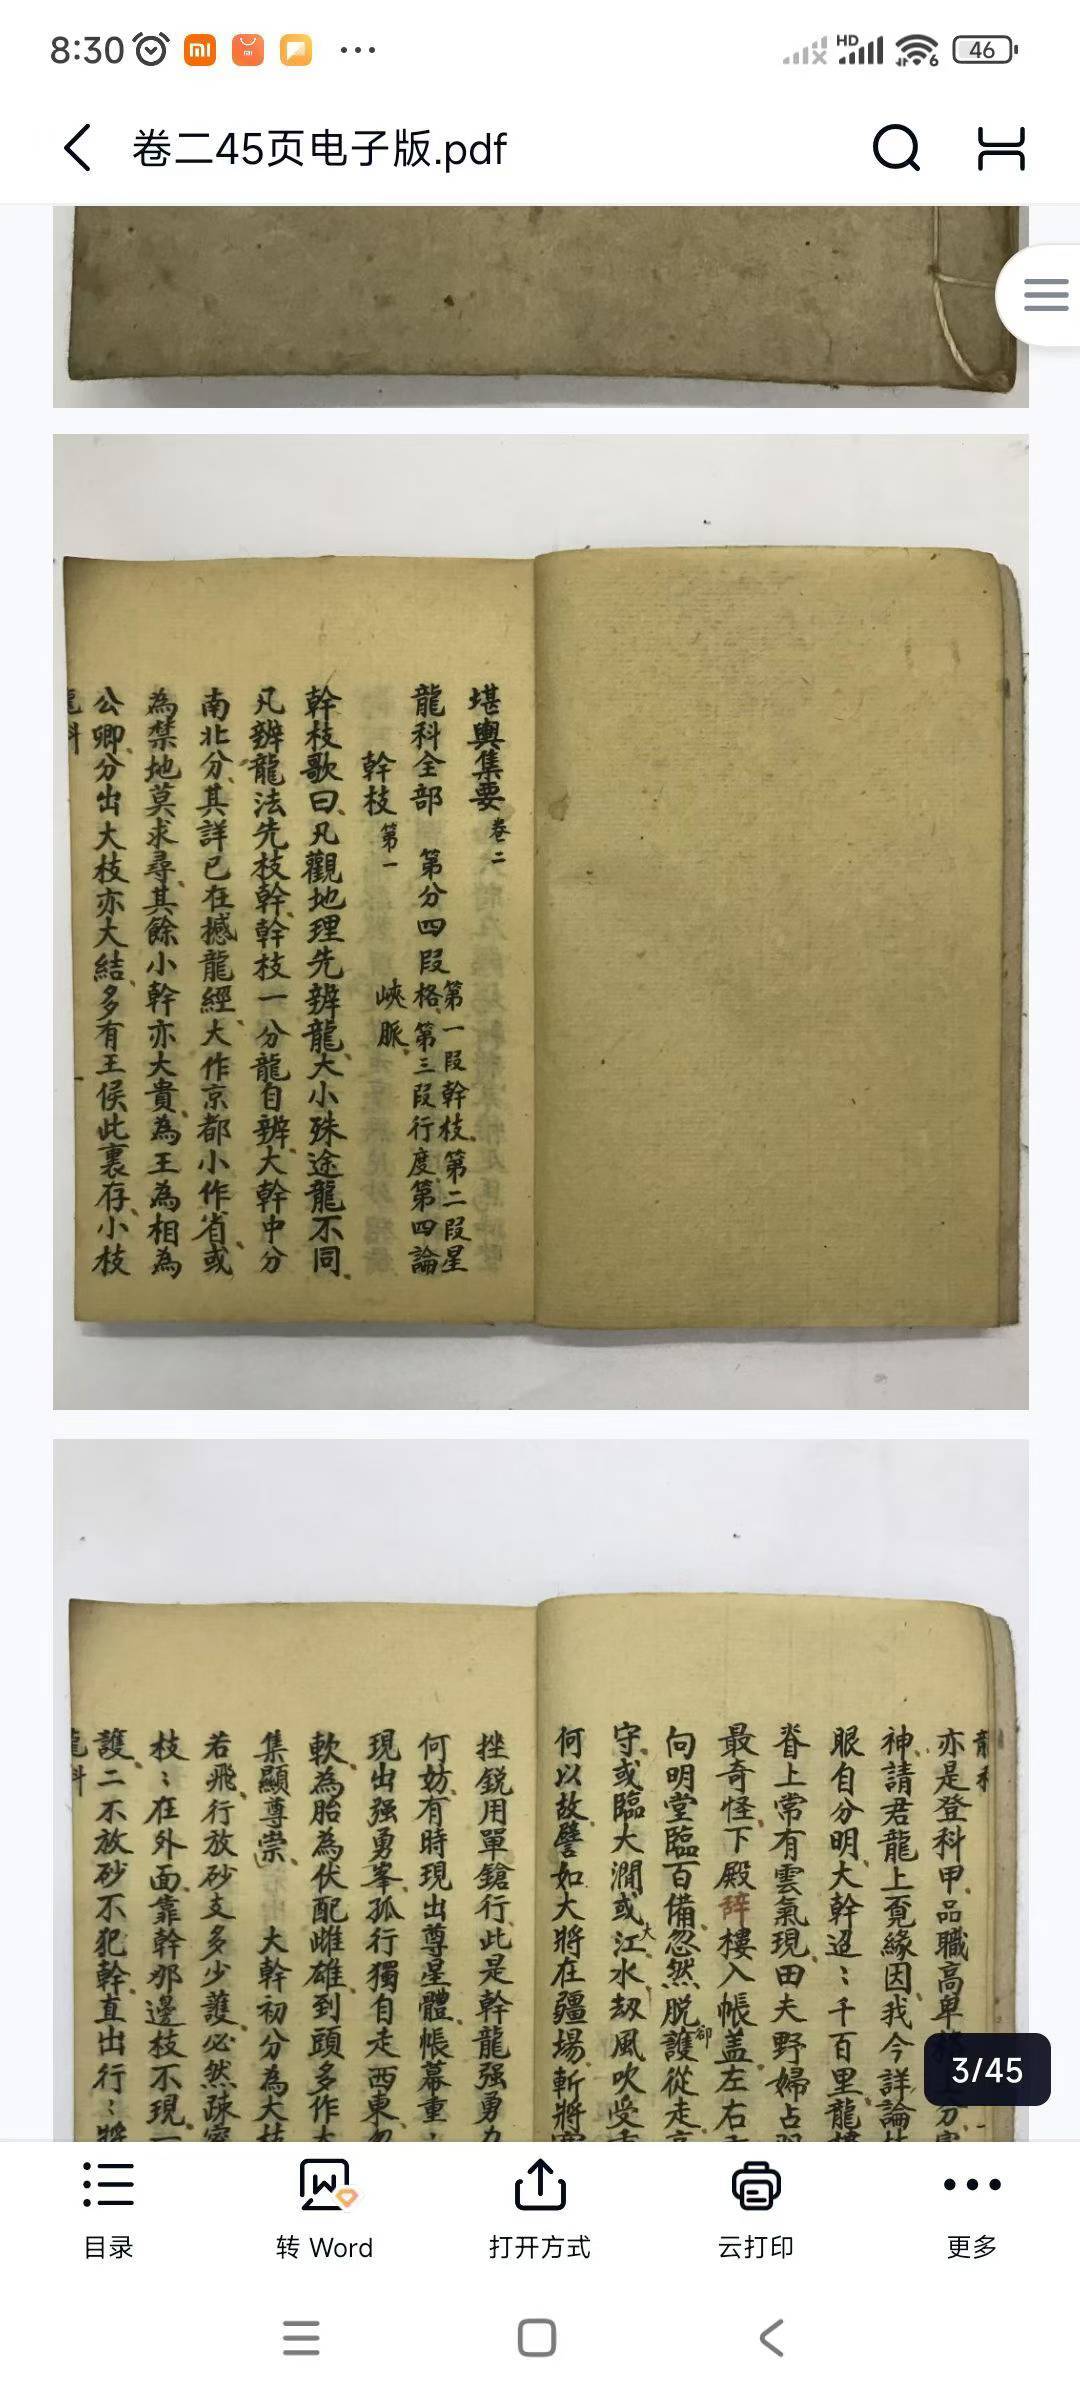 8:30
HD
6
46
卷二45页电子版.pdf
堪輿集要 卷二
龍科全部 第分四段 第一段幹枝 第二段星
格 第三段行度 第四論
峽脈
幹枝 第一
幹枝歌曰凡觀地理先辨龍大小殊途龍不同
凡辨龍法先枝幹幹枝一分龍自辨大幹中分
南北分其詳已在撼龍經大作京都小作省或
為禁地莫求尋其餘小幹亦大貴為王為相為
公卿分出大枝亦大結多有王侯此裏存小枝
龍科
亦是登科甲品職高卑
神請君龍上覔緣因我今詳論
眼自分明大幹迢〻千百里龍樓
脊上常有雲氣現田夫野婦占
最奇怪下殿辞樓入帳盖左右
向明堂臨百備忽然脱護卻從走
守或臨大澗或大江水刼風吹受
何以故譬如大將在疆場斬將
挫鋭用單鎗行此是幹龍强勇
何妨有時現出尊星體帳幕重
現出强勇峯孤行獨自走西東
軟為胎為伏配雌雄到頭多作
集顯尊崇 大幹初分為大枝
若飛行放砂支多少護必然疎密
枝〻在外面靠幹那邊枝不現一
護二不放砂不犯幹直出行〻將
龍科
3/45
目录
转 Word
打开方式
云打印
更多